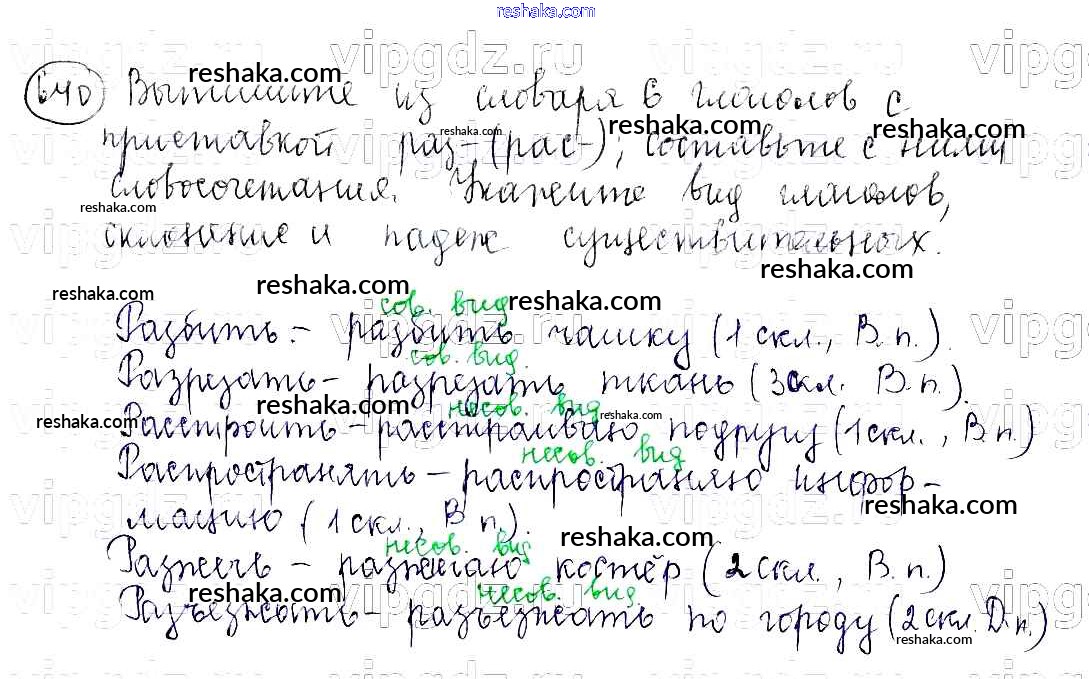 reshaka.com
640 Выпишите из словаря 6 глаголов с
приставкой раз-(рас-), составьте с ними
словосочетания. Укажите вид глаголов,
склонение и падеж существительных.
сов. вид
Разбить. – разбить чашку (1 скл., В. п.).
сов. вид.
Разрезать – разрезать ткань (3 скл. В. п.).
несов. вид
Расстроить – расстраиваю подругу (1 скл., В. п.)
несов. вид
Распространять – распространяю инфор-
мацию (1 скл., В п.).
несов. вид
Разжечь – разжигаю костёр (2 скл., В. п.)
несов. вид.
Разъезжать – разъезжать по городу (2 скл. Д. п.)
vipgdz.ru
reshaka.com